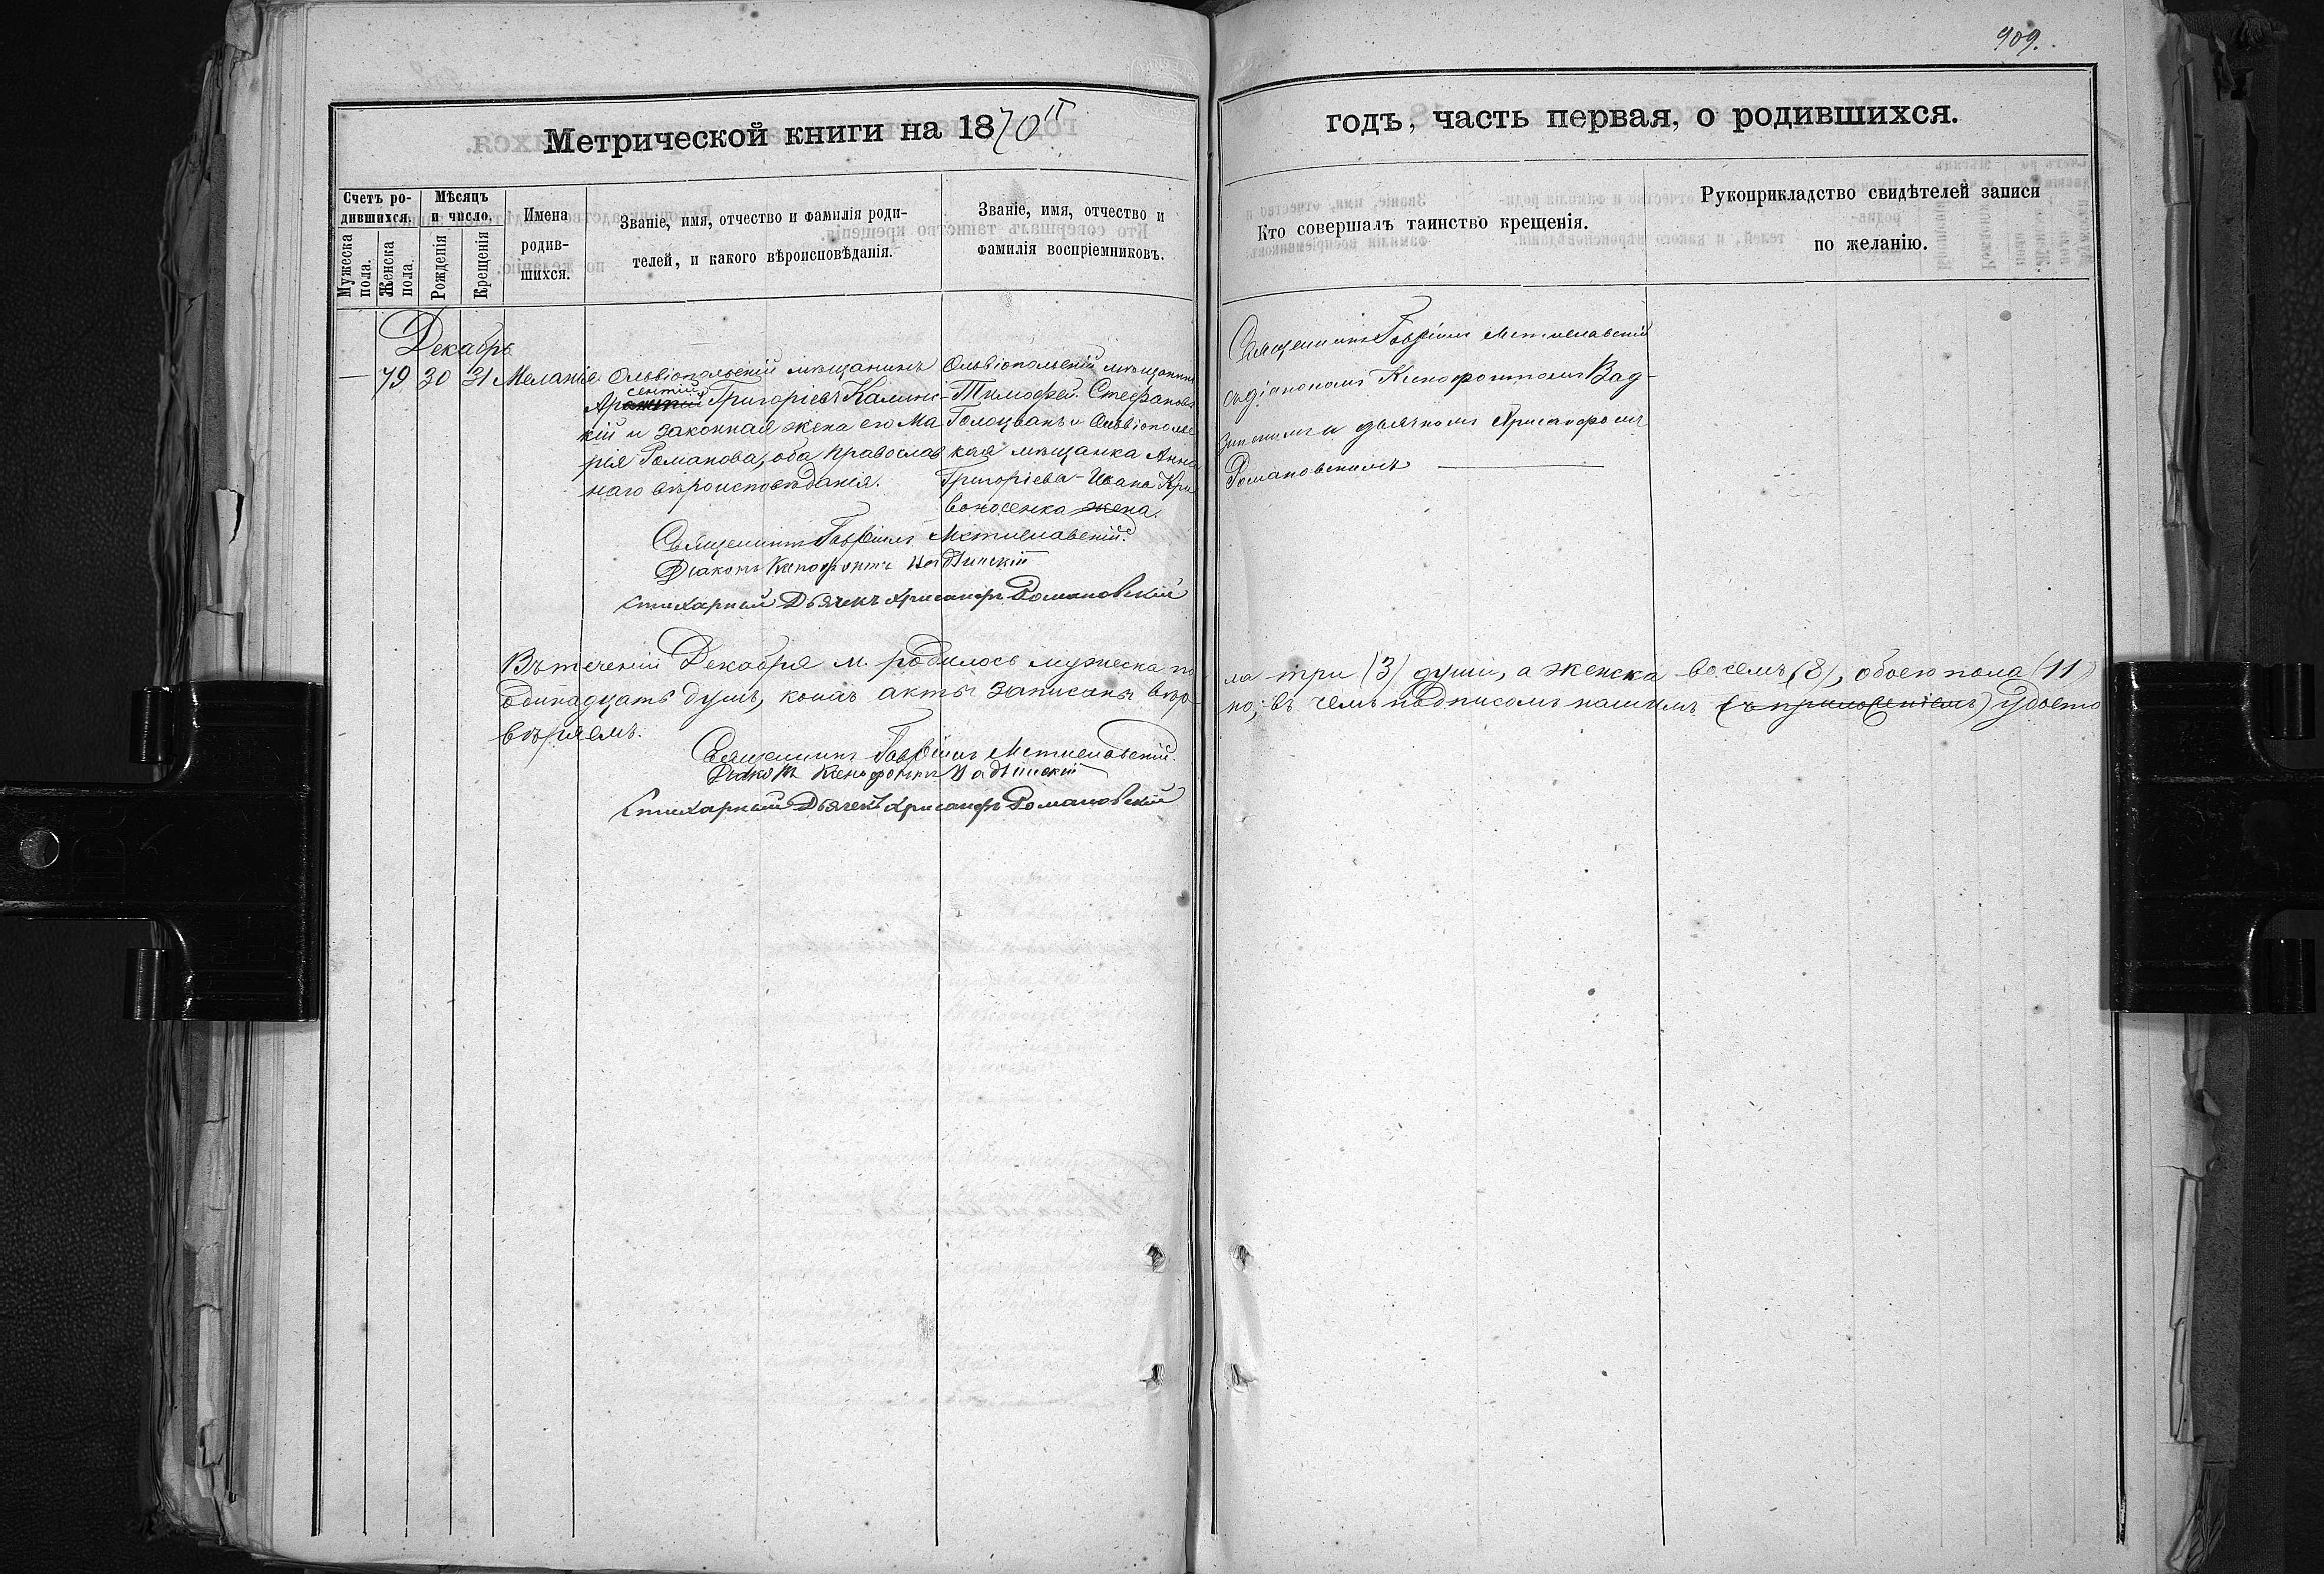 909.
Метрической книги на 1870й
годъ, часть первая, о родившихся.
Счетъ ро-
дившихся.
Мѣсяцъ
и число.
Мужеска
пола.
Женска
пола.
Рожденія
Крещенія
Имена
родив-
шихся.
Званіе, имя, отчество и фамилія роди-
телей, и какого вѣроисповѣданія.
Званіе, имя, отчество и
фамилія воспріемниковъ.
Кто совершалъ таинство крещенія.
Рукоприкладство свидѣтелей записи
по желанію.
Декабрь
— 79 30 31 Меланія
Ольвіопольскій мѣщанинъ
сентій
Ар Григоріевъ Калинс-
кій и законная жена его Ма
рія Романова, оба православ
наго вѣроисповѣданія.
Ольвіопольскій мѣщанинъ
Тимофей Стефановъ
Голоцванъ и Ольвіопольс
кая мѣщанка Анна
Григоріева - Ивана Кри
воносенко жена.
Священникъ Гавріилъ Мстиславскій
съ діакономъ Ксенофонтомъ Вад-
зинскимъ и дьячкомъ Хрисанфомъ
Романовскимъ
Священникъ Гавріилъ Мстиславскій.
Діаконъ Ксенофонтъ
Стихарный Дьячекъ Хрисанфъ Романовскій
Въ теченіи Декабря м. родилось мужеска по
ла три (3) души, а женска восемъ (8), обоего пола (11)
одинадцать душъ, коихъ акты записаны вѣр-
но; въ чемъ подписомъ нашимъ (съ приложеніемъ) удосто
вѣряемъ.
Священникъ Гавріилъ Мстиславскій.
Діаконъ Ксенофонтъ
Стихарный Дьячекъ Хрисанфъ Романовскій